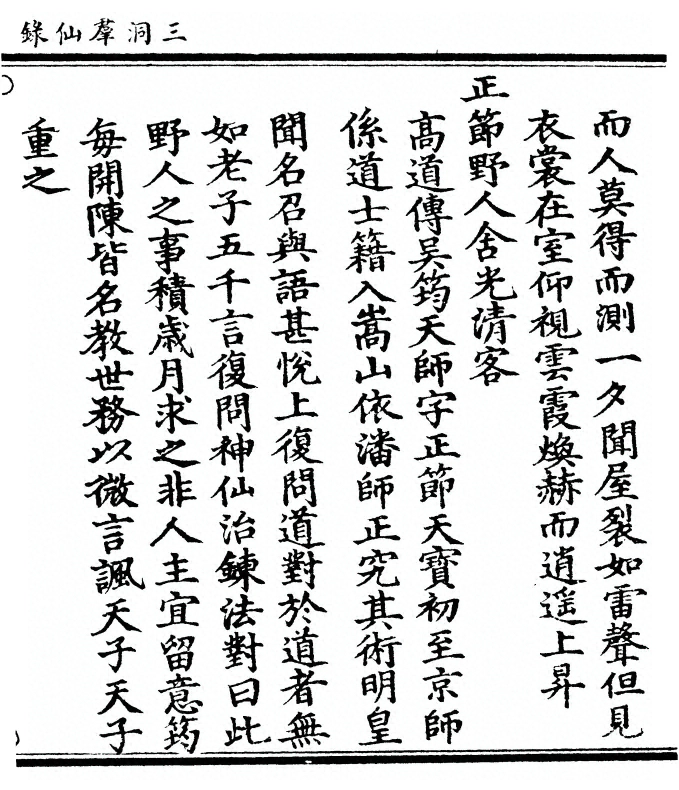 三洞羣仙錄
而人莫得而測一夕聞屋裂如雷聲但見
衣裳在室仰視雲霞煥赫而逍遥上昇
正節野人舍光清客
高道傳吴筠天師字正節天寶初至京師
係道士籍入嵩山依潘師正究其術明皇
聞名召與語甚悅上復問道對於道者無
如老子五千言復問神仙治鍊法對曰此
野人之事積歲月求之非人主宜留意筠
每開陳皆名教世務以微言諷天子天子
重之